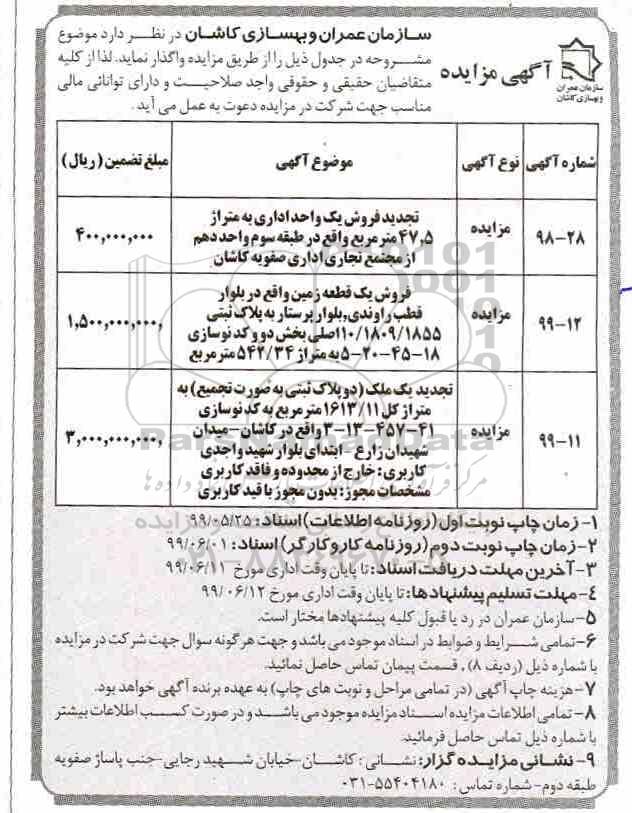 سازمان عمران و بهسازی کاشان در نظر دارد موضوع
مشروحه در جدول ذیل را از طریق مزایده واگذار نماید. لذا از کلیه
متقاضیان حقیقی و حقوقی واجد صلاحیت و دارای توانائی مالی
مناسب جهت شرکت در مزایده دعوت به عمل می آید.
آگهی مزایده
سازمان عمران
و بهسازی کاشان
شماره آگهی نوع آگهی موضوع آگهی مبلغ تضمین (ریال)
۹۸-۲۸ مزایده
تجدید فروش یک واحد اداری به متراژ
۴۷,۵ متر مربع واقع در طبقه سوم واحد دهم
از مجتمع تجاری اداری صفویه کاشان
۴۰۰,۰۰۰,۰۰۰
۹۹-۱۲ مزایده
فروش یک قطعه زمین واقع در بلوار
قطب راوندی,بلوار پرستار به پلاک ثبتی
۱۰/۱۸۰۹/۱۸۵۵اصلی بخش دو و کد نوسازی
۱۸-۴۵-۲۰-۵به متراژ ۵۴۲/۳۴ متر مربع
۱,۵۰۰,۰۰۰,۰۰۰,
۹۹-۱۱ مزایده
تجدید یک ملک (دو پلاک ثبتی به صورت تجمیع) به
متراژ کل ۱۶۱۳/۱۱ متر مربع به کد نوسازی
۴۱-۴۵۷-۱۳-۳ واقع در کاشان-میدان
شهیدان زارع - ابتدای بلوار شهید واجدی
کاربری: خارج از محدوده و فاقد کاربری
مشخصات مجوز: بدون مجوز با قید کاربری
۳,۰۰۰,۰۰۰,۰۰۰,
ParsNamadData
۱- زمان چاپ نوبت اول (روزنامه اطلاعات) اسناد: ۹۹/۰۵/۲۵
۲-زمان چاپ نوبت دوم (روزنامه کار و کارگر) اسناد: ۹۹/۰۶/۰۱
۳-آخرین مهلت دریافت اسناد: تا پایان وقت اداری مورخ ۹۹/۰۶/۱۱
۴-مهلت تسلیم پیشنهادها: تا پایان وقت اداری مورخ ۹۹/۰۶/۱۲
۵-سازمان عمران در رد یا قبول کلیه پیشنهادها مختار است.
۶-تمامی شرایط و ضوابط در اسناد موجود می باشد و جهت هرگونه سوال جهت شرکت در مزایده
با شماره ذیل (ردیف ۸) , قسمت پیمان تماس حاصل نمائید.
۷-هزینه چاپ آگهی (در تمامی مراحل و نوبت های چاپ) به عهده برنده آگهی خواهد بود.
۸-تمامی اطلاعات مزایده اسناد مزایده موجود می باشد و در صورت کسب اطلاعات بیشتر
با شماره ذیل تماس حاصل فرمائید.
۹- نشانی مزایده گزار: نشانی : کاشان-خیابان شهید رجایی-جنب پاساژ صفویه
طبقه دوم-شماره تماس: ۰۳۱-۵۵۴۰۴۱۸۰